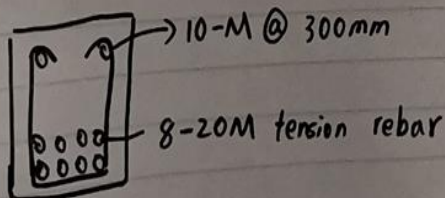 10-M @ 300mm
8-20M tension rebar